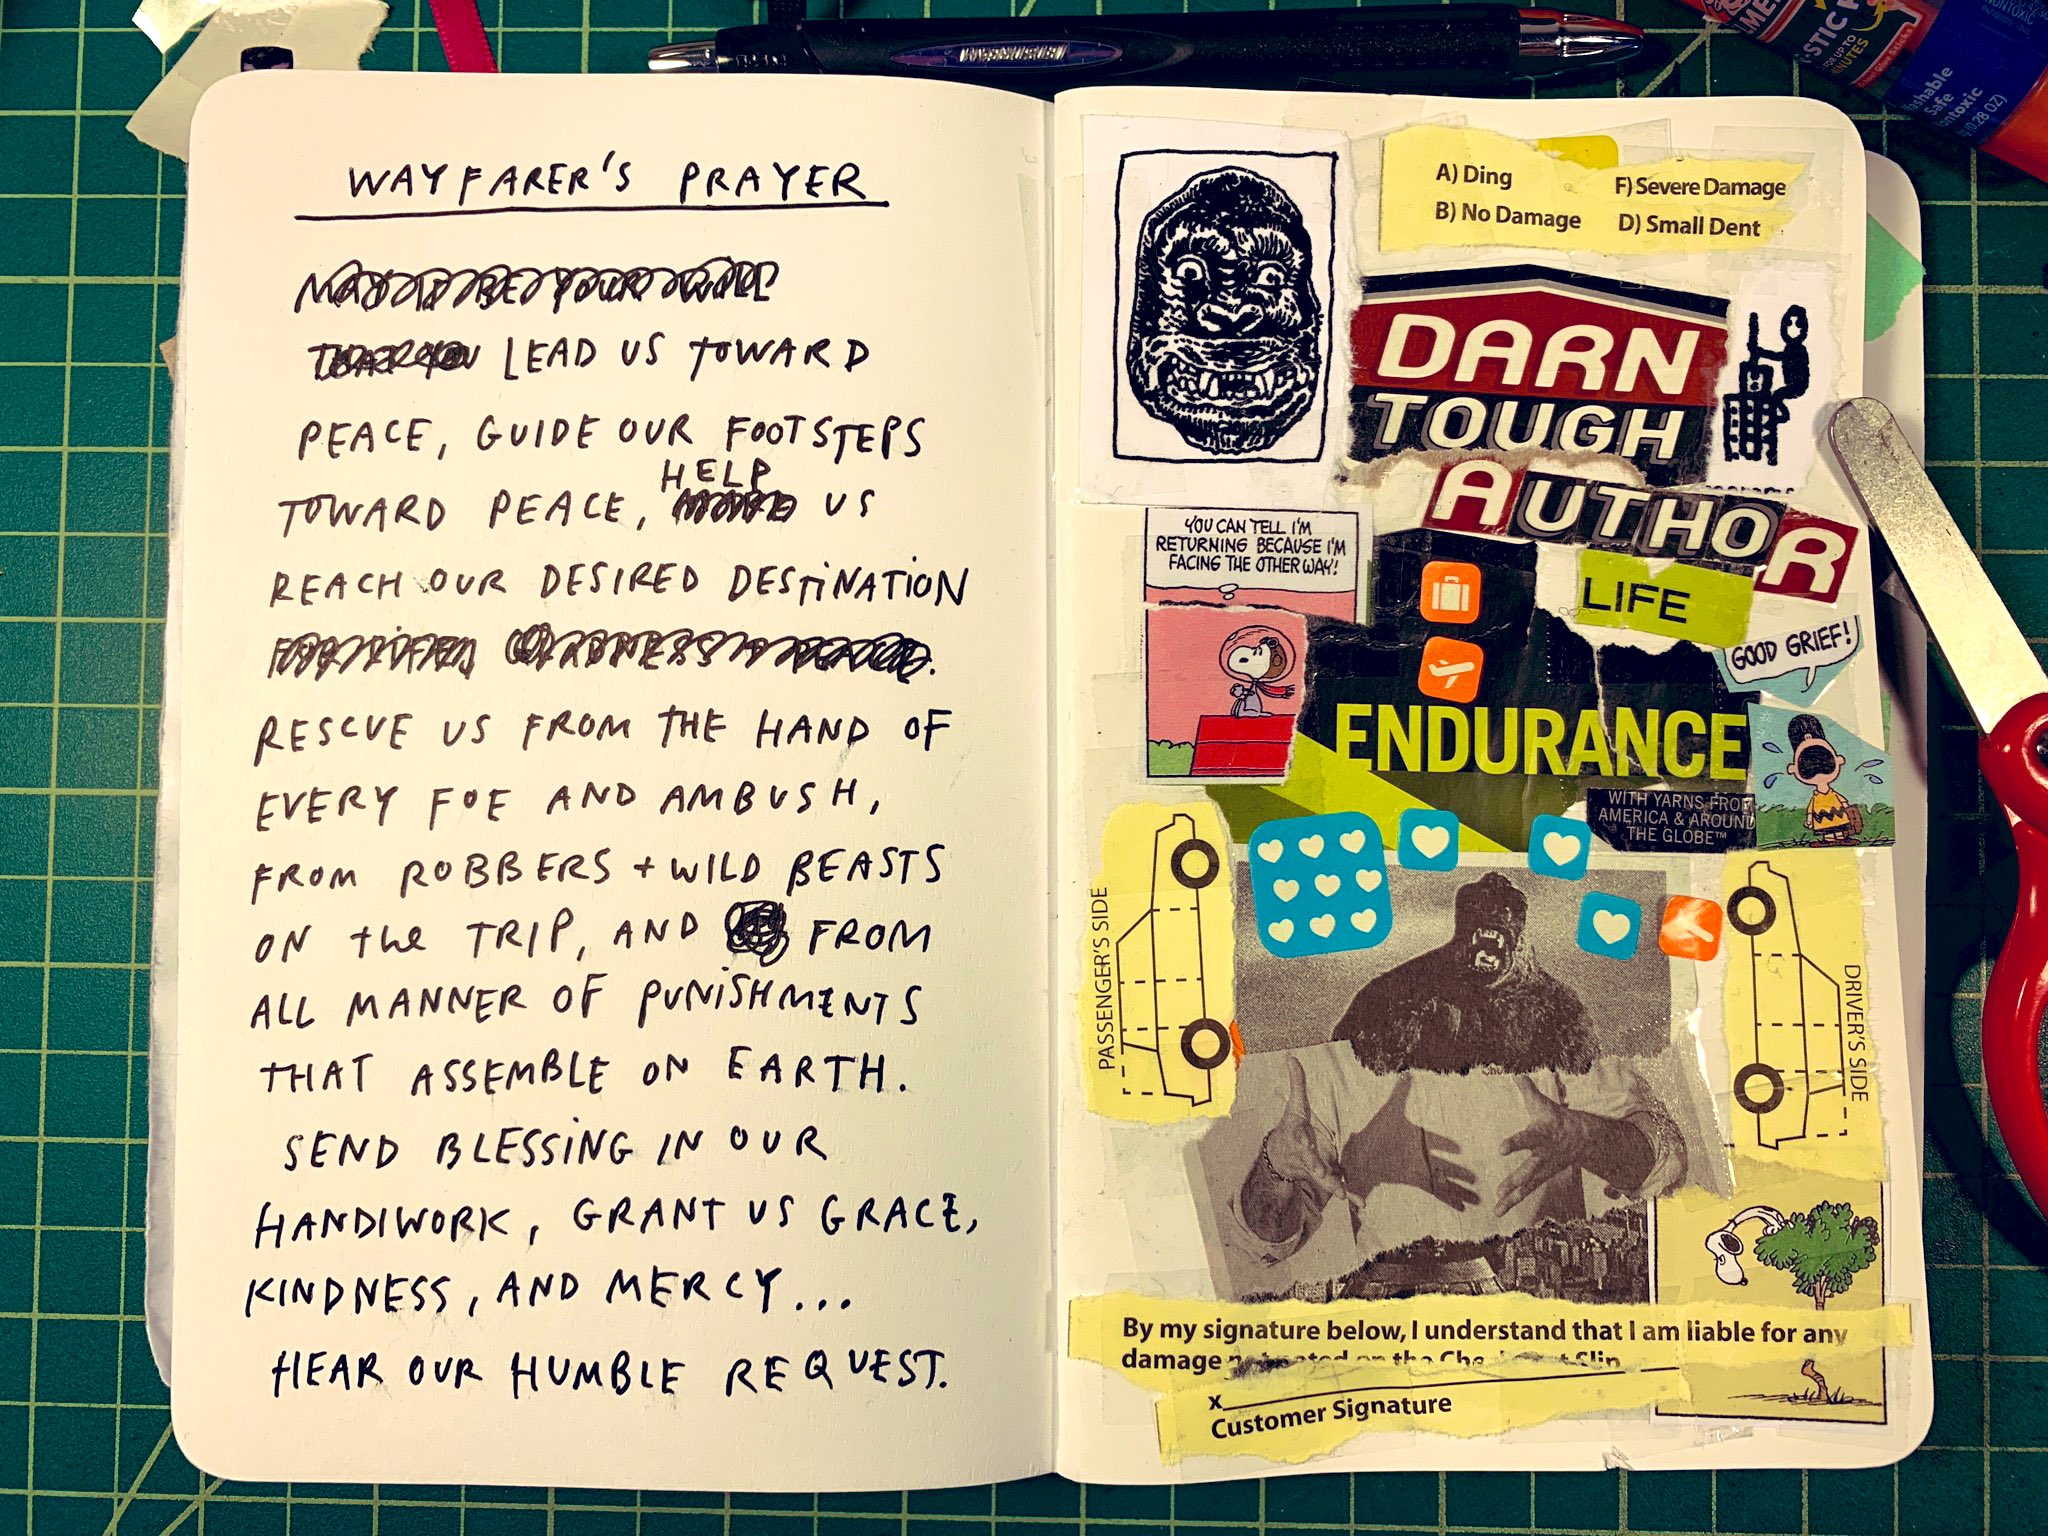 WAYFARER'S PRAYER
LEAD US TOWARD
PEACE, GUIDE OUR FOOTSTEPS
HELP
TOWARD PEACE, US
REACH OUR DESIRED DESTINATION
RESCUE US FROM THE HAND OF
EVERY FOE AND AMBUSH,
FROM ROBBERS + WILD BEASTS
ON the TRIP, AND FROM
ALL MANNER OF PUNISHMENTS
THAT ASSEMBLE ON EARTH.
SEND BLESSING IN OUR
HANDIWORK, GRANT US GRACE,
KINDNESS, AND MERCY...
HEAR OUR HUMBLE REQUEST.
A) Ding F) Severe Damage
B) No Damage D) Small Dent
DARN
TOUGH
AUTHOR
YOU CAN TELL I'M
RETURNING BECAUSE I'M
FACING THE OTHER WAY!
LIFE
GOOD GRIEF!
ENDURANCE
WITH YARNS FROM
AMERICA & AROUND
THE GLOBE™
PASSENGER'S SIDE
DRIVER'S SIDE
By my signature below, I understand that I am liable for any
damage
x
Customer Signature
STICK
MINUTES
Washable
Safe
Nontoxic